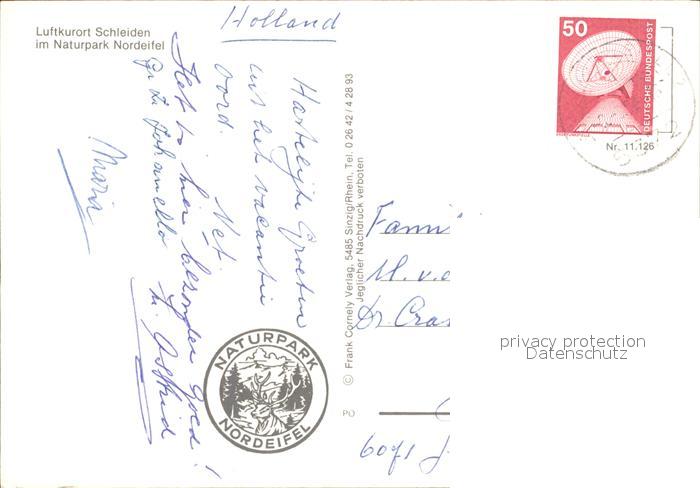 Luftkurort Schleiden
im Naturpark Nordeifel
Holland
Hartelijke Groeten
uit het vacantie
oord.
Het is hier besonder goed!
Maria
Astrid
NATURPARK
NORDEIFEL
© Frank Cornely Verlag, 5485 Sinzig/Rhein, Tel. 0 26 42 / 4 28 93
Jeglicher Nachdruck verboten
50
DEUTSCHE BUNDESPOST
Nr. 11.126
Fami
M. v. d
Dr.
PO
privacy protection
Datenschutz